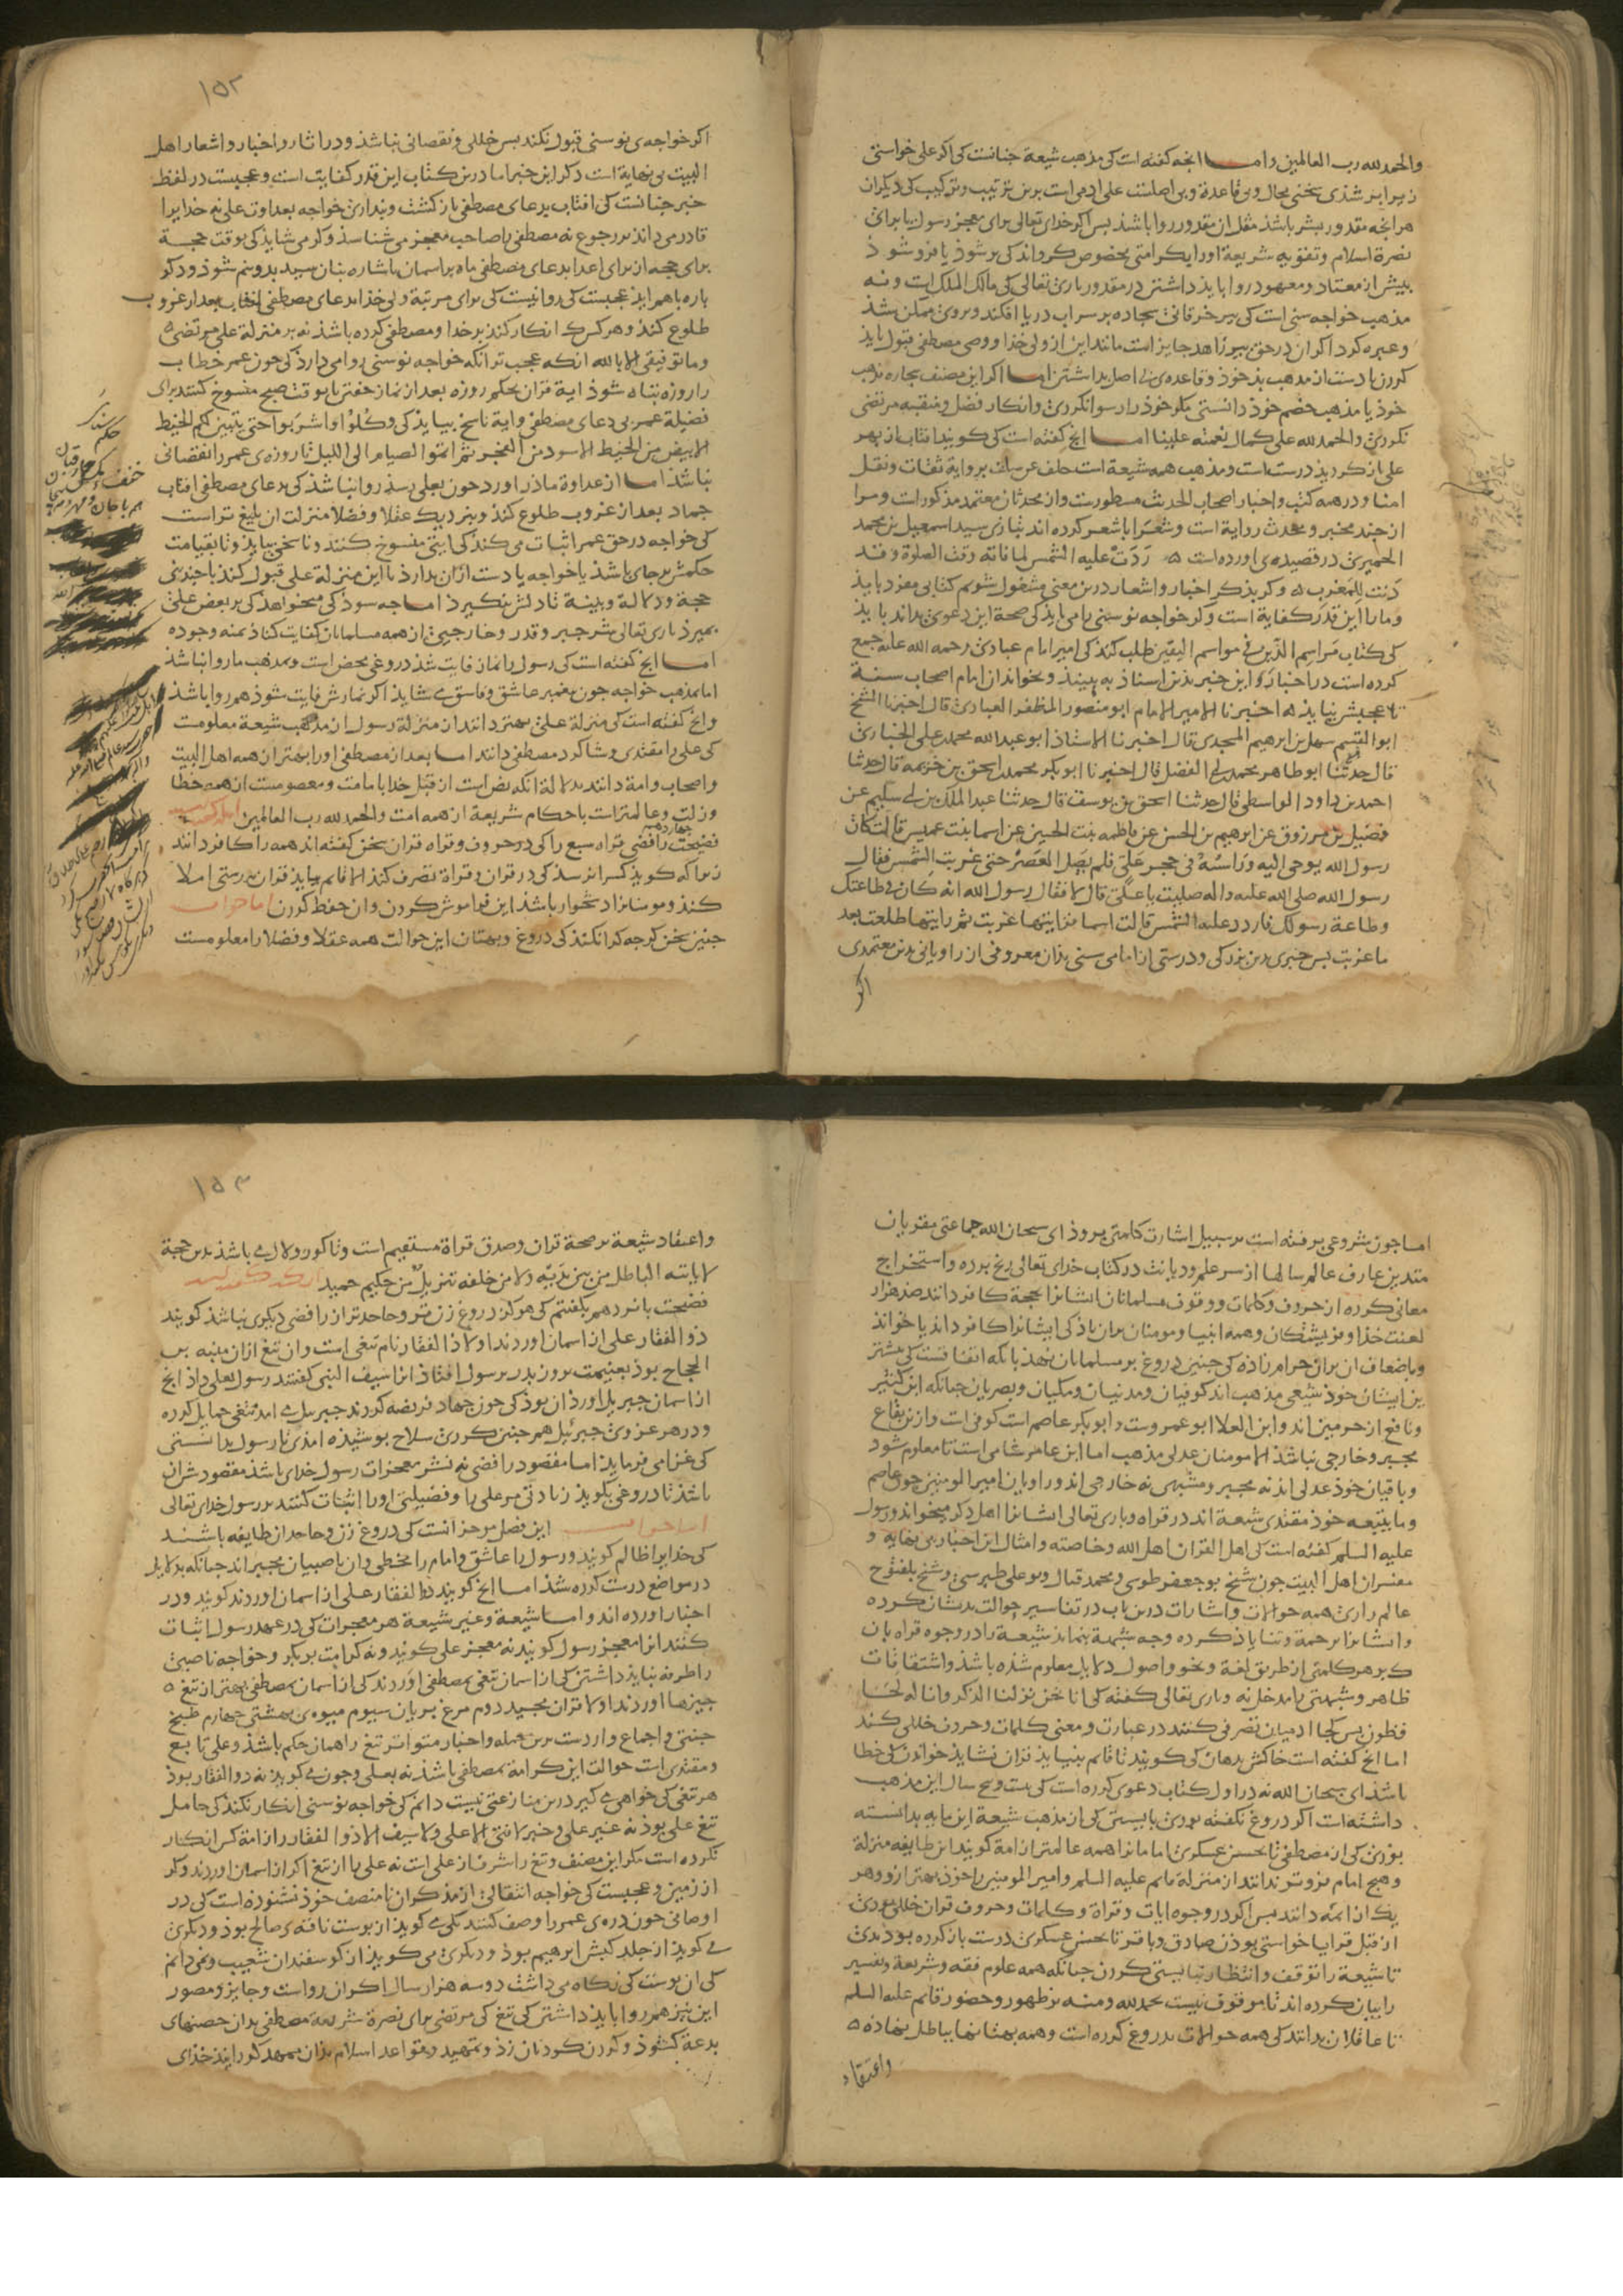 والحمد لله رب العالمین واما انچه کفته است کی مذهب شیعة جنانست کی اکر علی خواستی
زیر ابر شذی سخنی محال و بی قاعدة و بی اصلست علی ادمی است برین ترتیب و ترکیب کی دیکران
هر انچه مقدور بشر باشذ مثل ان مقدور روا باشذ بس اکر خدای تعالی برای معجز رسول یا برای
نصرة اسلام و تقویه شریعة اورا بکرامتی مخصوص کرداند کی بر شوذ یا فرو شوذ
بیش از معتاد و معهود روا بایذ داشتن در مقدور باری تعالی کی مالک الملک است و نه
مذهب خواجه سنی است کی بیر خرقانی سجاده بر سر اب دریا افکند و بروی ممکن شذ
و عبره کرد اکر ان در حق بیر زاهد جایز است مانند این از ولی خذا و وصی مصطفی قبول بایذ
کردن یا دست از مذهب بذ خوذ و قاعده‌ی بی اصل بداشتن اما اکر این مصنف بجاره مذهب
خوذ یا مذهب خصم خوذ دانستی مکر خوذ را رسوا نکردی و انکار فضل و منقبه مرتضی
نکردی والحمد لله علی کمال نعمته علینا اما انچ کفته است کی کویند افتاب از بهر
علی باز کردیذ درست است و مذهب همه شیعة است خلف عن سلف بروایة ثقات و نقل
امنا و در همه کتب و اخبار اصحاب الحدیث مسطورست و از محدثان معتمد مذکور است و مرا
از جند مخبر و محدث روایة است و شعرا باشعر کرده اند بتازی سید اسمعیل بن محمد
الحمیری در قصیده‌ی اورده است ردت علیه الشمس لما فاته وقت الصلوة وقد
دنت للمغرب و کر بذکر اخبار و اشعار درین معنی مشغول شویم کتابی مفرد بایذ
و ما را این قدر کفایة است و کر خواجه نوسنی را می بایذ کی صحة این دعوی بداند بایذ
کی کتاب مراسم الدین فی مواسم الیقین طلب کند کی امیر امام عبادی رحمه الله علیه جمع
کرده است در اخبار و این خبر بذین اسناذ به بیند و بخواند از امام اصحاب سنة
تا عجبش نیایذ اخبرنا الامیر الامام ابو منصور المظفر العبادی قال اخبرنا الشیخ
ابو القسم سهل بن ابرهیم المجدی قال اخبرنا الاستاذ ابو عبد الله محمد بن علی الخبازی
قال حدثنا ابو طاهر محمد بن الفضل قال اخبرنا ابو بکر محمد بن اسحق بن خزیمه قال حدثنا
احمد بن داود الواسطی قال حدثنا اسحق بن یوسف قال حدثنا عبد الملک بن ابی سلیم عن
فضیل بن مرزوق عن ابرهیم بن الحسن عن فاطمه بنت الحسین عن اسما بنت عمیس قالت کان
رسول الله یوحی الیه وراسه فی حجر علی فلم یصل العصر حتی غربت الشمس فقال
رسول الله صلی الله علیه واله صلیت یا علی قال لا فقال رسول الله انه کان فی طاعتک
وطاعة رسولک فاردد علیه الشمس قالت اسما فرایتها غربت ثم رایتها طلعت بعد
ما غربت بس خبری بدین بزرکی و درستی از امامی سنی بذان معروفی از راویانی بدین معتمدی
اکر
۱۵۲
اکر خواجه‌ی نوسنی قبول نکند بس خللی و نقصانی نباشذ و در اثار و اخبار و اشعار اهل
البیت بی نهایة است ذکر این خبر اما درین کتاب این قدر کفایت است و عجبست در لفظ
خبر جنانست کی افتاب بدعای مصطفی باز کشت و بنداری خواجه بعداوت علی نه خدایرا
قادر می داند بر رجوع نه مصطفی را صاحب معجز می شناسذ و کر می شایذ کی بوقت حجة
برای حجه از برای اعدا بدعای مصطفی ماه بر اسمان باشاره بنان سید بدونیم شوذ و دکر
باره باهم ایذ عجبست کی روا نیست کی برای مرتبة ولی خذا بدعای مصطفی افتاب بعد از غروب
طلوع کند و هر کس کی انکار کند بر خدا و مصطفی کرده باشذ نه بر منزلة علی مرتضی
وما توفیقی الا بالله انکه عجب تر انکه خواجه نوسنی روا می دارذ کی جون عمر خطاب
را روزه تباه شوذ ایة قران بحکم روزه بعد از نماز خفتن تا بوقت صبح منسوخ کنند برای
فضیلة عمر بی دعای مصطفی و ایة ناسخ بیایذ کی وکلوا واشربوا حتی یتبین لکم الخیط
الابیض من الخیط الاسود من الفجر ثم اتموا الصیام الی اللیل تا روزه‌ی عمر را نقصانی
نباشذ اما از عداوة ماذر اورد جون بعلی رسذ روا نباشذ کی بدعای مصطفی افتاب
جماد بعد از غروب طلوع کند و بنزدیک عقلا و فضلا منزلت ان بلیغ تر است
کی خواجه در حق عمر اثبات می کند کی ایتی منسوخ کنند و ناسخی بیایذ و تا بقیامت
حکمش بر جای باشذ یا خواجه یا دست از ان بدارذ یا این منزلة علی قبول کند با جندین
حجة و دلالة و بینة تا دلش نکیرذ اما جه سوذ کی میخواهذ کی بر بعض علی
بمیرذ باری تعالی شر جبر و قدر و خارجیی از همه مسلمانان کفایت کناذ بمنه وجوده
اما انچ کفته است کی رسول را نماز فایت شذ دروغی محض است و بمذهب ما روا نباشذ
اما بمذهب خواجه جون پیغمبر عاشق و فاسق می شایذ اکر نمازش فایت شوذ هم روا باشذ
و انچ کفته است کی منزلة علی بهتر دانند از منزلة رسول از مذهب شیعة معلومست
کی علی را مقتدی و شاکرد مصطفی دانند اما بعد از مصطفی اورا بهتر از همه اهل البیت
و اصحاب و امة دانند بدلالة انکه نص است از قبل خدا بامامت و معصومست از همه خطا
و زلت و عالمتر است باحکام شریعة از همه امت والحمد لله رب العالمین
فضیحت جهاردهم رافضی قراء سبع را کی در حروف و قراة قران سخن کفته اند همه را کافر دانند
زیرا که کویذ کس را نرسذ کی در قران و قراة تصرف کند الا قایم بیایذ قران بدرستی املا
کند و مومنانرا دشخوار باشذ این فراموش کردن و ان حفظ کردن اما جواب
جنین سخن کر جه کرا نکند کی دروغ و بهتان این حوالت همه عقلا و فضلا را معلومست
اما جون شروعی برفته است بر سبیل اشارت کلمتی بروذ ای سبحان الله جماعتی مقریان
متدین عارف عالم سالها از سر علم و دیانت در کتاب خدای تعالی رنج برده و استخراج
معانی کرده از حروف و کلمات و وقوف مسلمانان ایشانرا بحجة کافر دانند صذ هزار
لعنت خذا و فریشتکان و همه انبیا و مومنان بر ان باذ کی ایشانرا کافر داند یا خواند
و باضعاف ان بر ان حرام زاذه کی جنین دروغ بر مسلمانان نهذ با انکه اتفاقست کی بیشتر
ین ایشان خوذ شیعی مذهب اند کوفیان و مدنیان و مکیان و بصریان جنانکه ابن کثیر
و نافع از حرمین اند و ابن العلا ابو عمروست و ابو بکر عاصم است کوفی است و از بقاع
مجبر و خارجی نباشذ الا مومنان عدلی مذهب اما ابن عامر شامی است تا معلوم شوذ
و باقیان خوذ عدلی اند نه مجبر و مشبهی نه خارجی اند و راویان امیر المومنین جون عاصم
و ما بتبعه خوذ مقتدی شیعة اند در قراة و باری تعالی ایشانرا اهل ذکر میخواند و رسول
علیه السلم کفته است کی اهل القران اهل الله و خاصته و امثال این اخبار بی نهایة و
مفسران اهل البیت جون شیخ بوجعفر طوسی و محمد فتال و بوعلی طبرسی و شیخ بلفتوح
عالم رازی همه حوالات و اشارات درین باب در تفاسیر حوالت بدیشان کرده
و ایشانرا برحمة و ثنا یاذ کرده و جه شبهة بماند شیعة را در وجوه قراة بان
کی بر هر کلمتی از طریق لغة و نحو و اصول دلایل معلوم شذه باشذ و اشتقاقات
ظاهر و شبهتی را مدخل نه و باری تعالی کفته کی انا نحن نزلنا الذکر وانا له لحا
فظون بس کجا ادمیان تصرفی کنند در عبارت و معنی کلمات و حروف خللی کند
اما انچ کفته است خاکش بدهان کی کویند تا قایم بنیایذ قران نشایذ خواندن کی خطا
باشذ ای سبحان الله نه در اول کتاب دعوی کرده است کی بیست و پنج سال این مذهب
داشته است اکر دروغ نکفته بوذی بایستی کی از مذهب شیعة این مایه بدانسته
بوذی کی از مصطفی تا بحسن عسکری امامانرا همه عالمتر از امة کویند این طایفه منزلة
و هیچ امام فروتر ندانند از منزلة قایم علیه السلم و امیر المومنین را خوذ بهتر از و و هر
یک از ائمه دانند بس اکر در وجوه ایات و قراة و کلمات و حروف قران خللی بوذی
از قبل قرا یا خواستی بوذن صادق و باقر تا بحسن عسکری درست باز کرده بوذندی
تا شیعة را توقف و انتظار نبایستی کردن جنانکه همه علوم فقه و شریعة و تفسیر
را بیان کرده اند تا موقوف نیست بحمد الله و منه بر ظهور و حضور قایم علیه السلم
تا عاقلان بدانند کی همه حوالات بدروغ کرده است و همه بهتانها بباطل نهاده
واعتقاد
۱۵۳
و اعتقاد شیعة بر صحة قران و صدق قراة مستقیم است و تا کور و لال می باشذ بدین حجة
لا یاتیه الباطل من بین یدیه ولا من خلفه تنزیل من حکیم حمید
فضیحت بانزدهم بکفتم کی هرکز دروغ زن تر و جاحدتر از رافضی دیکری نباشذ کویند
ذو الفقار علی از اسمان اوردند اولا ذا الفقار نام تیغی است و ان تیغ از ان منبه بن
الحجاج بوذ بغنیمت بروز بدر برسول افتاذ انرا سیف النبی کفتند رسول بعلی داذ انچ
از اسمان جبریل اورذ ان بوذ کی جون جهاد فریضه کردند جبریل می امذ تیغی حمایل کرده
و در هر غزوی جبرئیل همجنین کردی سلاح بوشیذه امذی تا رسول بدانستی
کی غزا می فرمایذ اما مقصود رافضی نه نشر معجزات رسول خدای باشذ مقصودش ان
باشذ تا دروغی بکویذ زیادتی مر علی را و فضیلتی اورا اثبات کنند بر رسول خدای تعالی
اما جواب این فصل مزخرف انست کی دروغ زن و جاحد ان طایفه باشند
کی خدایرا ظالم کویند و رسول را عاشق و امام را مخطی و ان ناصبیان مجبر اند جنانکه بدلایل
در مواضع درست کرده شذ اما انچ کویند ذو الفقار علی از اسمان اوردند کویند و در
اخبار اورده اند و اما شیعة و غیر شیعة هر معجزات کی در عهد رسول اثبات
کنند انرا معجز رسول کویند نه معجز علی کویند و نه کرامت بوبکر و خواجه ناصبی
را طرفه نبایذ داشتن کی از اسمان تیغی بمصطفی اوردند کی از اسمان بمصطفی بهتر از تیغ
جیزها اوردند اولا قران مجید دوم مرغ بریان سیوم میوه‌ی بهشتی جهارم طبخ
جنتی و اجماع و اردست برین جمله و اخبار متواتر تیغ را همان حکم باشذ و علی تابع
و مقتدی است حوالت این کرامة بمصطفی باشذ نه بعلی و جون می کویذ نه ذو الفقار بوذ
هر تیغی کی خواهی می کیر درین منازعتی نیست دانم کی خواجه نوسنی انکار نکند کی حامل
تیغ علی بوذ نه غیر علی و خبر لا فتی الا علی ولا سیف الا ذو الفقار را از امة کس انکار
نکرده است مکر این مصنف و تیغ را شرف از علی است نه علی را از تیغ اکر از اسمان اوردند و کر
از زمین و عجبست کی خواجه انتقالی از مذکران نامنصف خوذ نشنوده است کی در
اوصافی جون دره‌ی عمر را وصف کنند یکی می کویذ از بوست ناقه‌ی صالح بوذ و دیکری
می کویذ از جلد کبش ابرهیم بوذ و دیکری می کویذ از کوسفندان شعیب و نمی دانم
کی ان بوست کی نکاه می داشت دو سه هزار سال اکر ان رواست و جایز و مصور
این نیز هم روا بایذ داشتن کی تیغ کی مرتضی برای نصرة شریعة مصطفی بدان حصنهای
بدعة کشوذ و کردن کردنان زذ و تمهید و قواعد اسلام بذان ممهد کردانیذ خذای